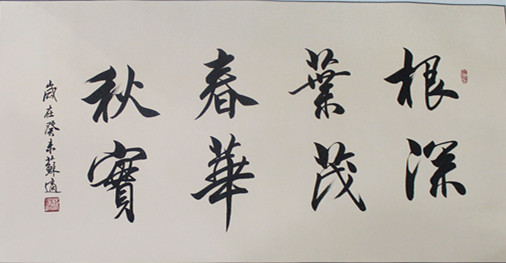 根深
葉茂
春華
秋實
歲在癸未蘇適